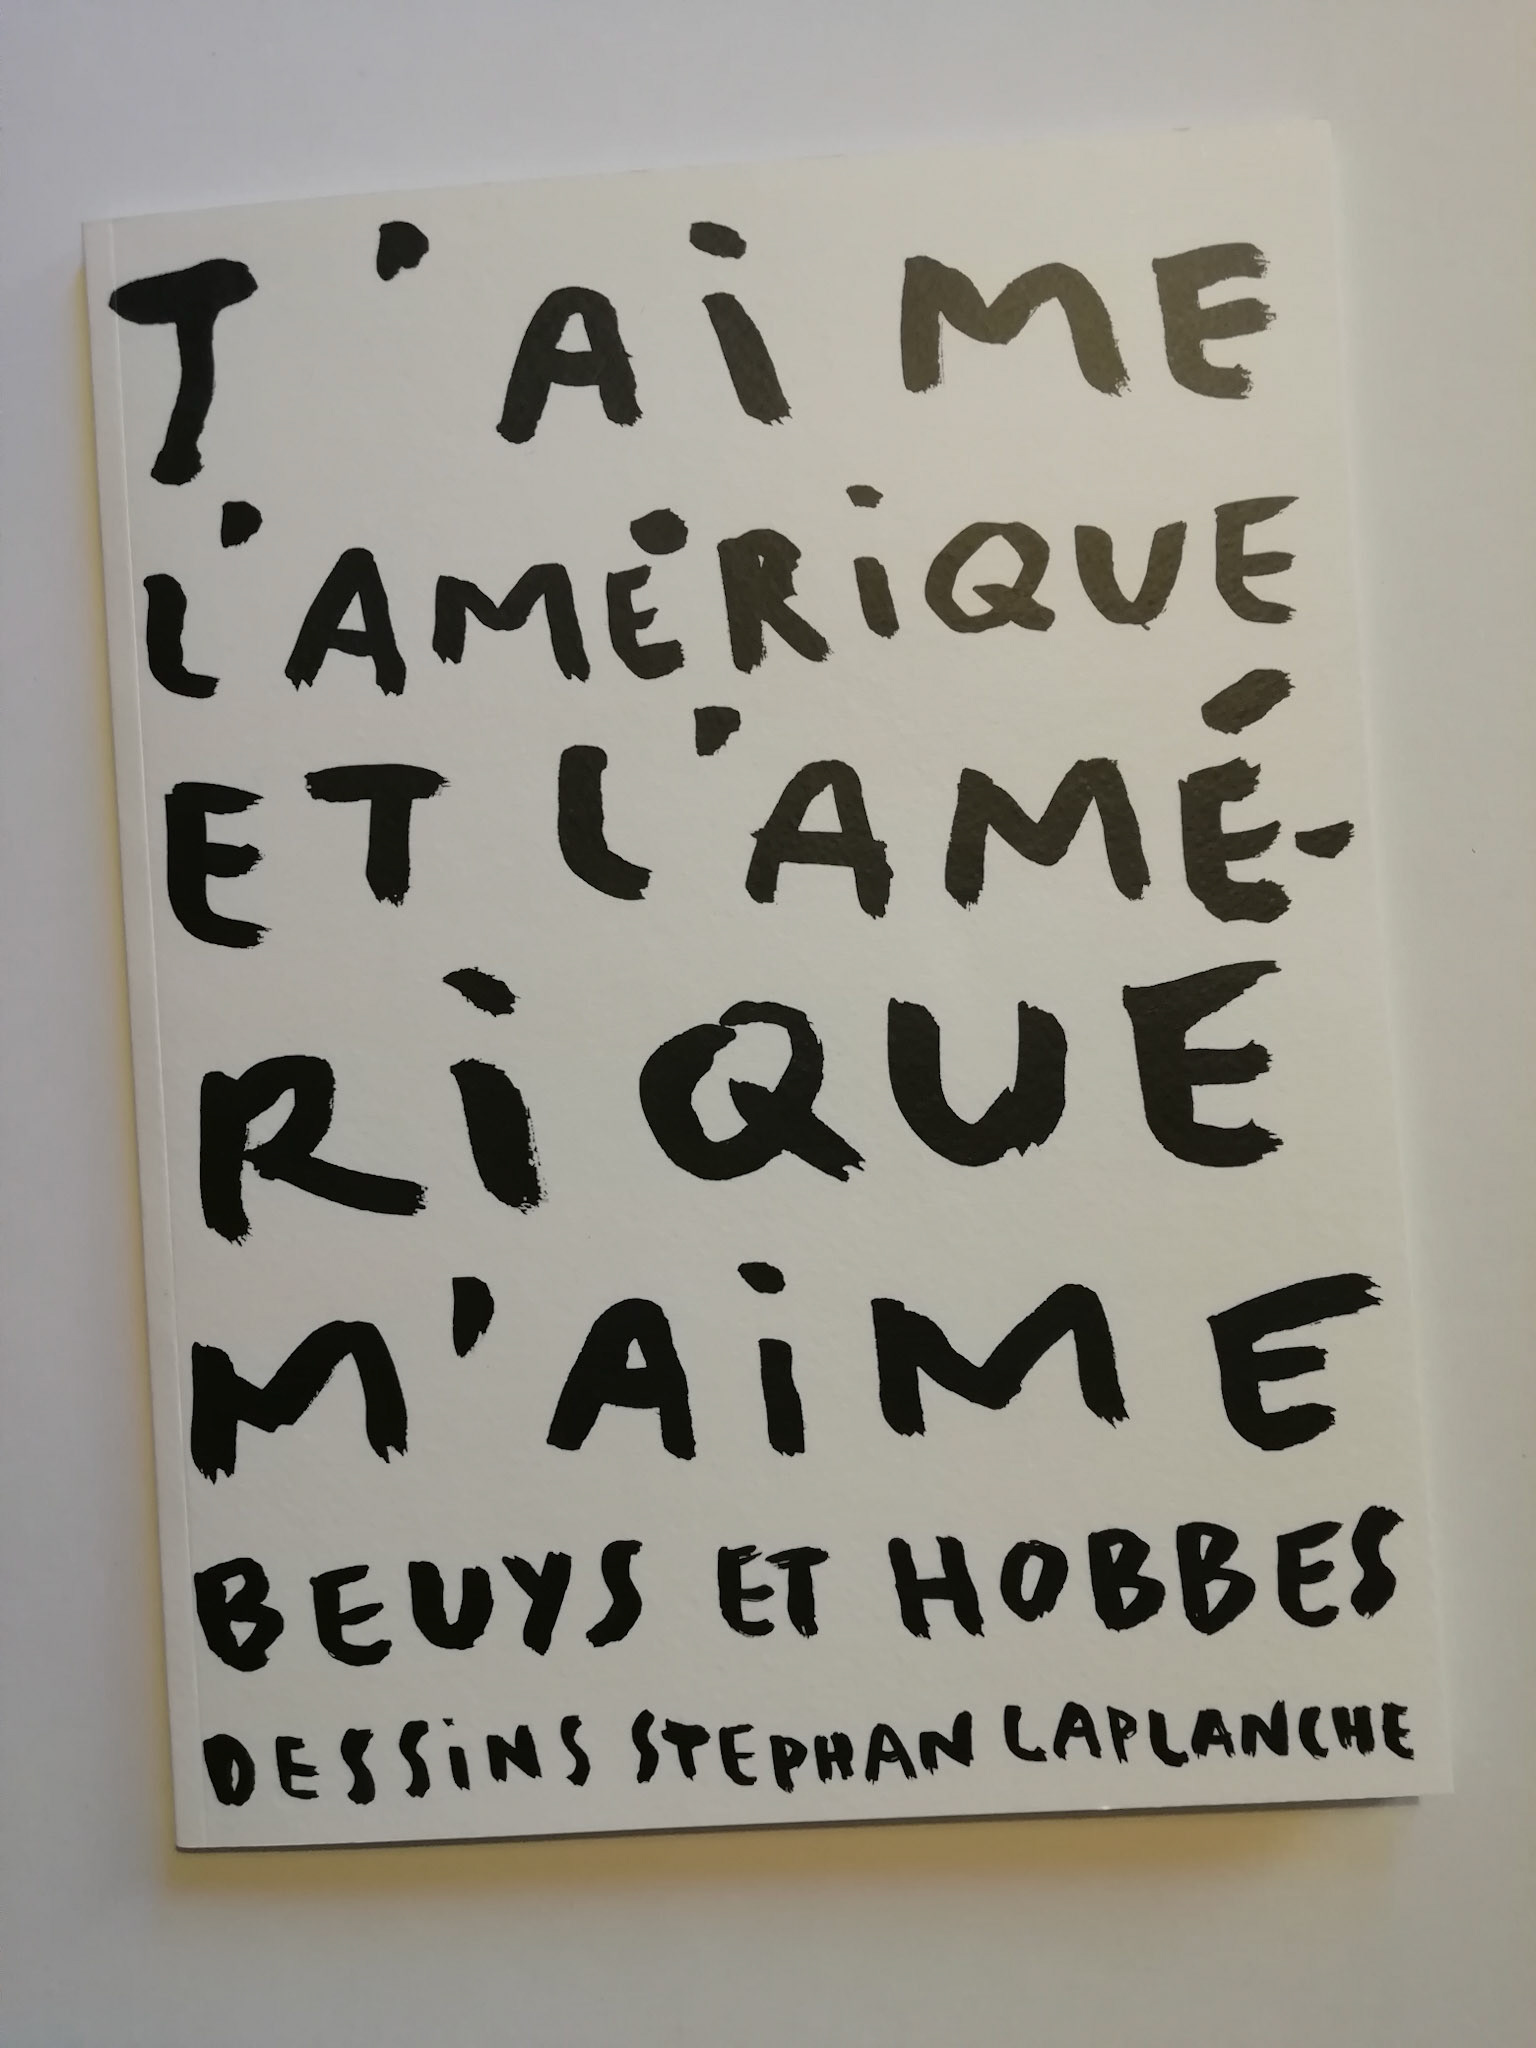 J'AiME
L'AMÉRiQUE
ET L'AMÉ-
RiQUE
M'AiME
BEUYS ET HOBBES
DESSiNS STEPHAN LAPLANCHE